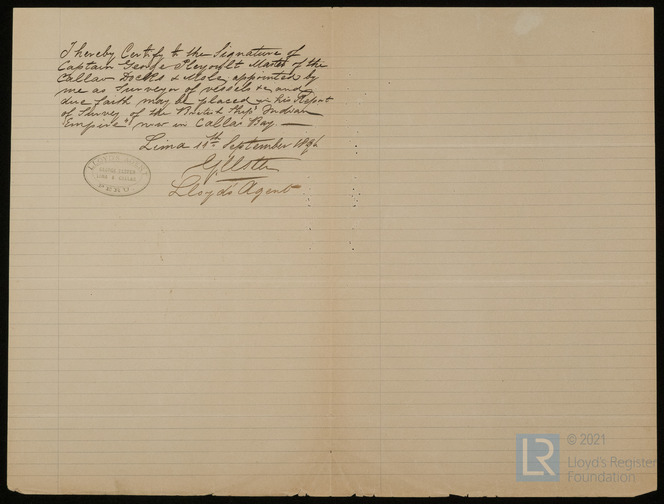 I hereby Certify to the Signature of
Captain George Master of the
Callao Docks & Mole, appointed by
me as Surveyor of vessels &c, and
due faith may be placed in his Report
of Survey of the British Ship "Indian
Empire" now in Callao Bay —
Lima 11th September 1896
Lloyd's Agent
LLOYD'S AGENT
LIMA & CALLAO
PERU
LR
© 2021
Lloyd's Register
Foundation